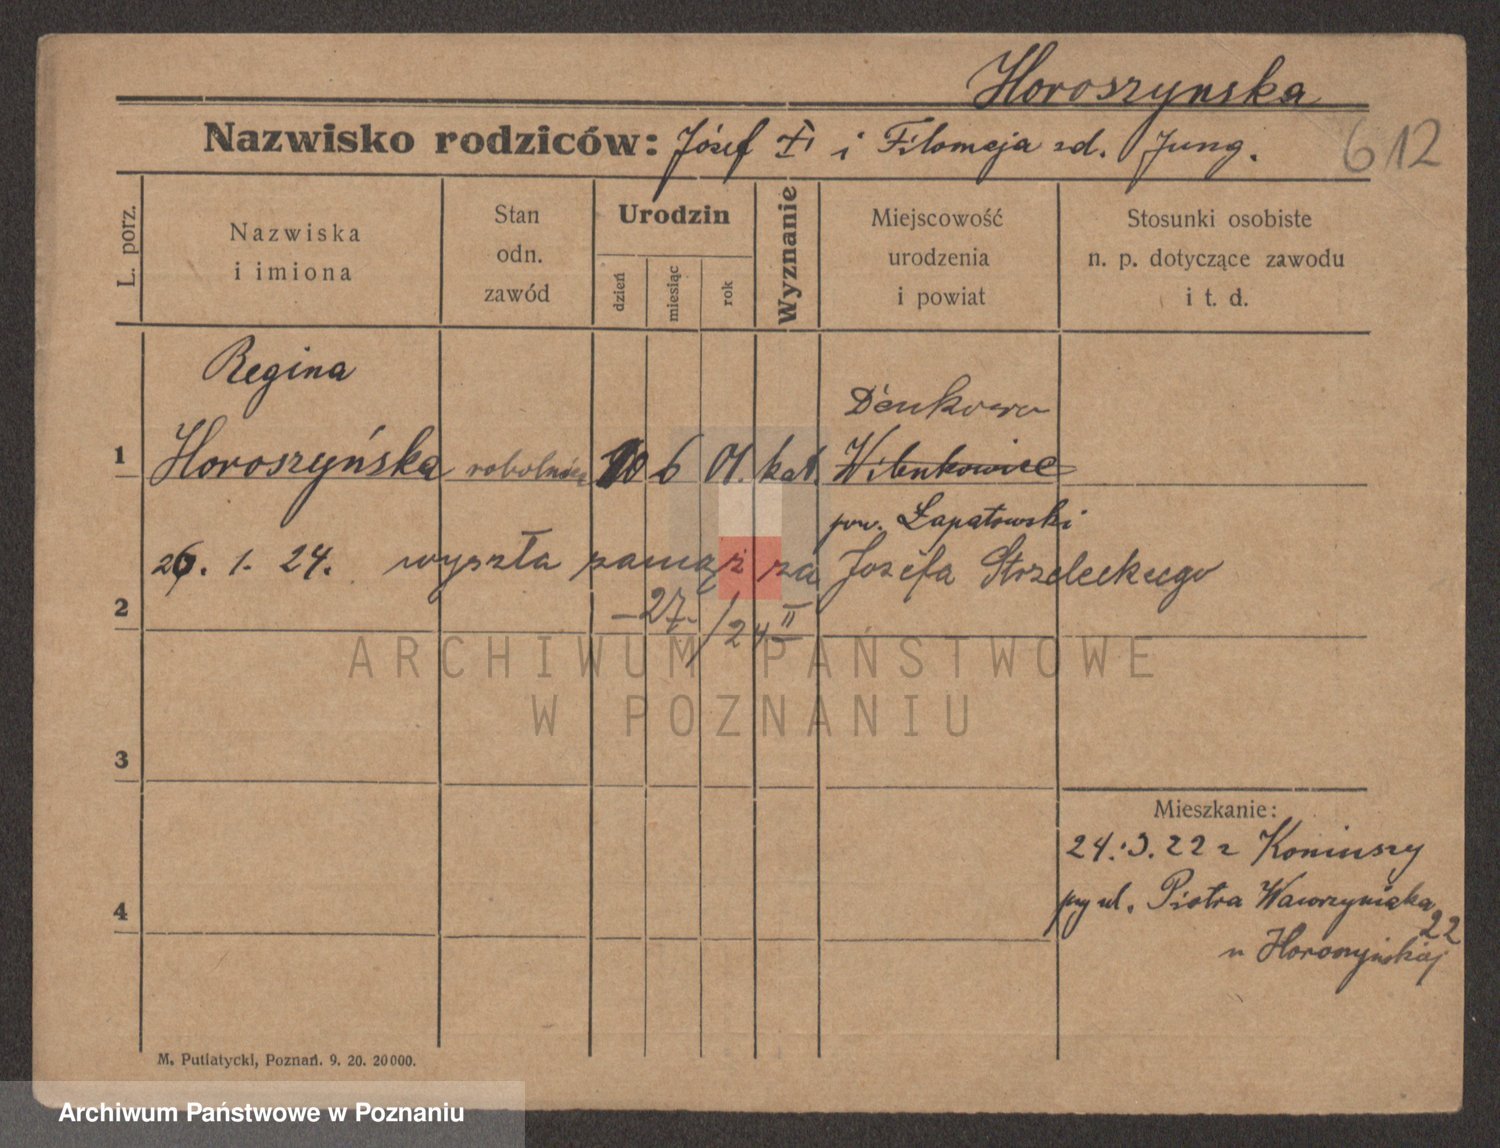 Horoszynska
Nazwisko rodziców: Józef i Filomeja zd. Jung.
612
L. porz.
Nazwiska
i imiona
Stan
odn.
zawód
Urodzin
dzień
miesiąc
rok
Wyznanie
Miejscowość
urodzenia
i powiat
Stosunki osobiste
n. p. dotyczące zawodu
i t. d.
Regina
Denkowo
1 Horoszyńska robotnica 10 6 01. kat. Wilenkowice
pow. Łapatowski
26. 1. 24. wyszła zamąż za Józefa Strzeleckiego
2
-27./24 II
3
Mieszkanie:
24. 3. 22 z Koniuszy
4
przy ul. Piotra Wawrzyniaka 22
u Horoszyńskiej
M. Putiatycki, Poznań. 9. 20. 20000.
ARCHIWUM PAŃSTWOWE
W POZNANIU
Archiwum Państwowe w Poznaniu